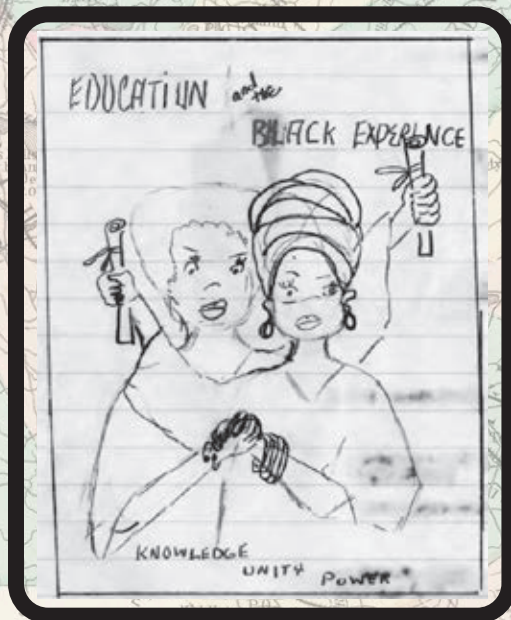 EDUCATION and the
BLACK EXPERIENCE
KNOWLEDGE
UNITY
POWER